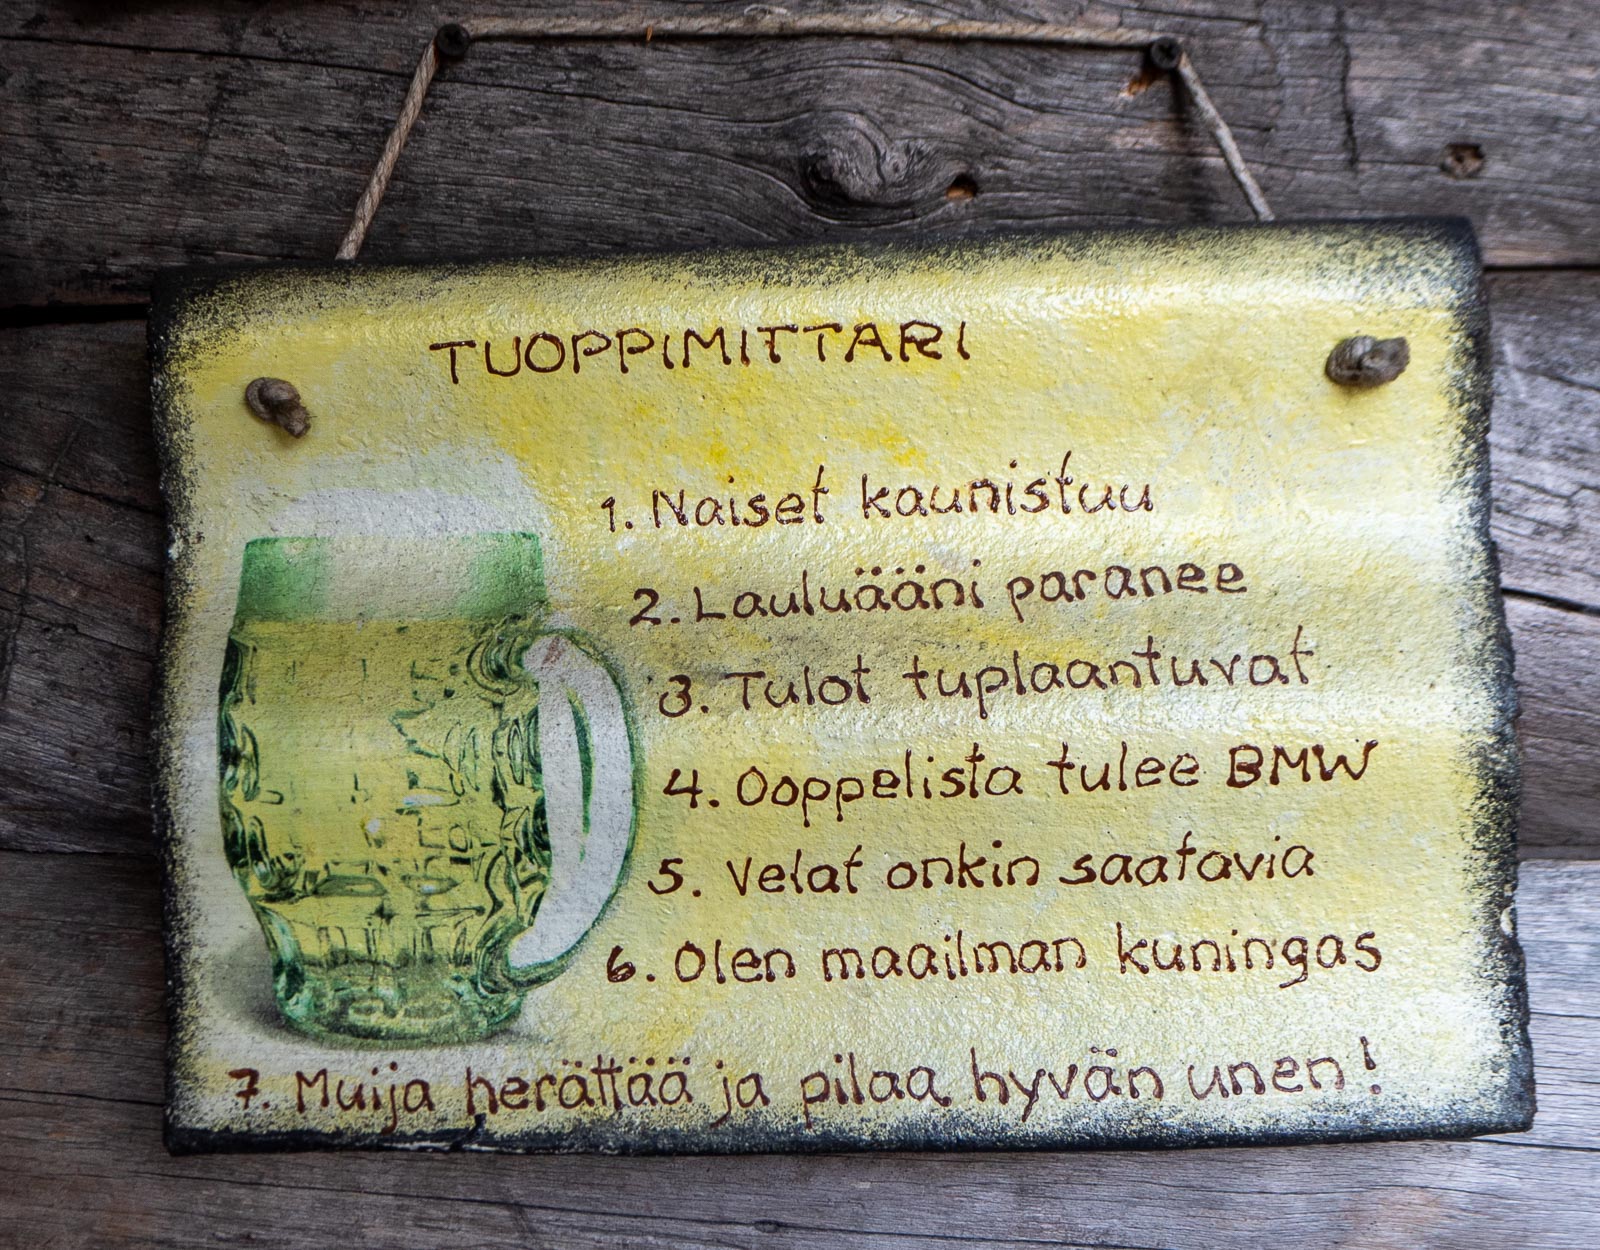 TUOPPIMITTARI
1. Naiset kaunistuu
2. Lauluääni paranee
3. Tulot tuplaantuvat
4. Ooppelista tulee BMW
5. Velat onkin saatavia
6. Olen maailman kuningas
7. Muija herättää ja pilaa hyvän unen!